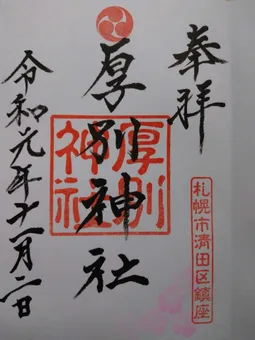 奉拝
厚別神社
厚別
神社
札幌市清田区鎮座
令和元年十一月二日